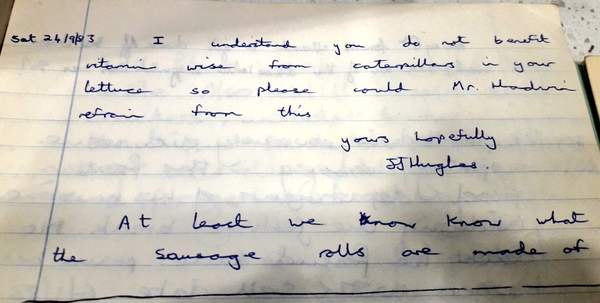 Sat 24/9/83 I understand you do not benefit
vitamin wise from caterpillars in your
lettuce so please could Mr. Hadwin
refrain from this
yours hopefully
JJHughes.
At least we know know what
the sausage rolls are made of